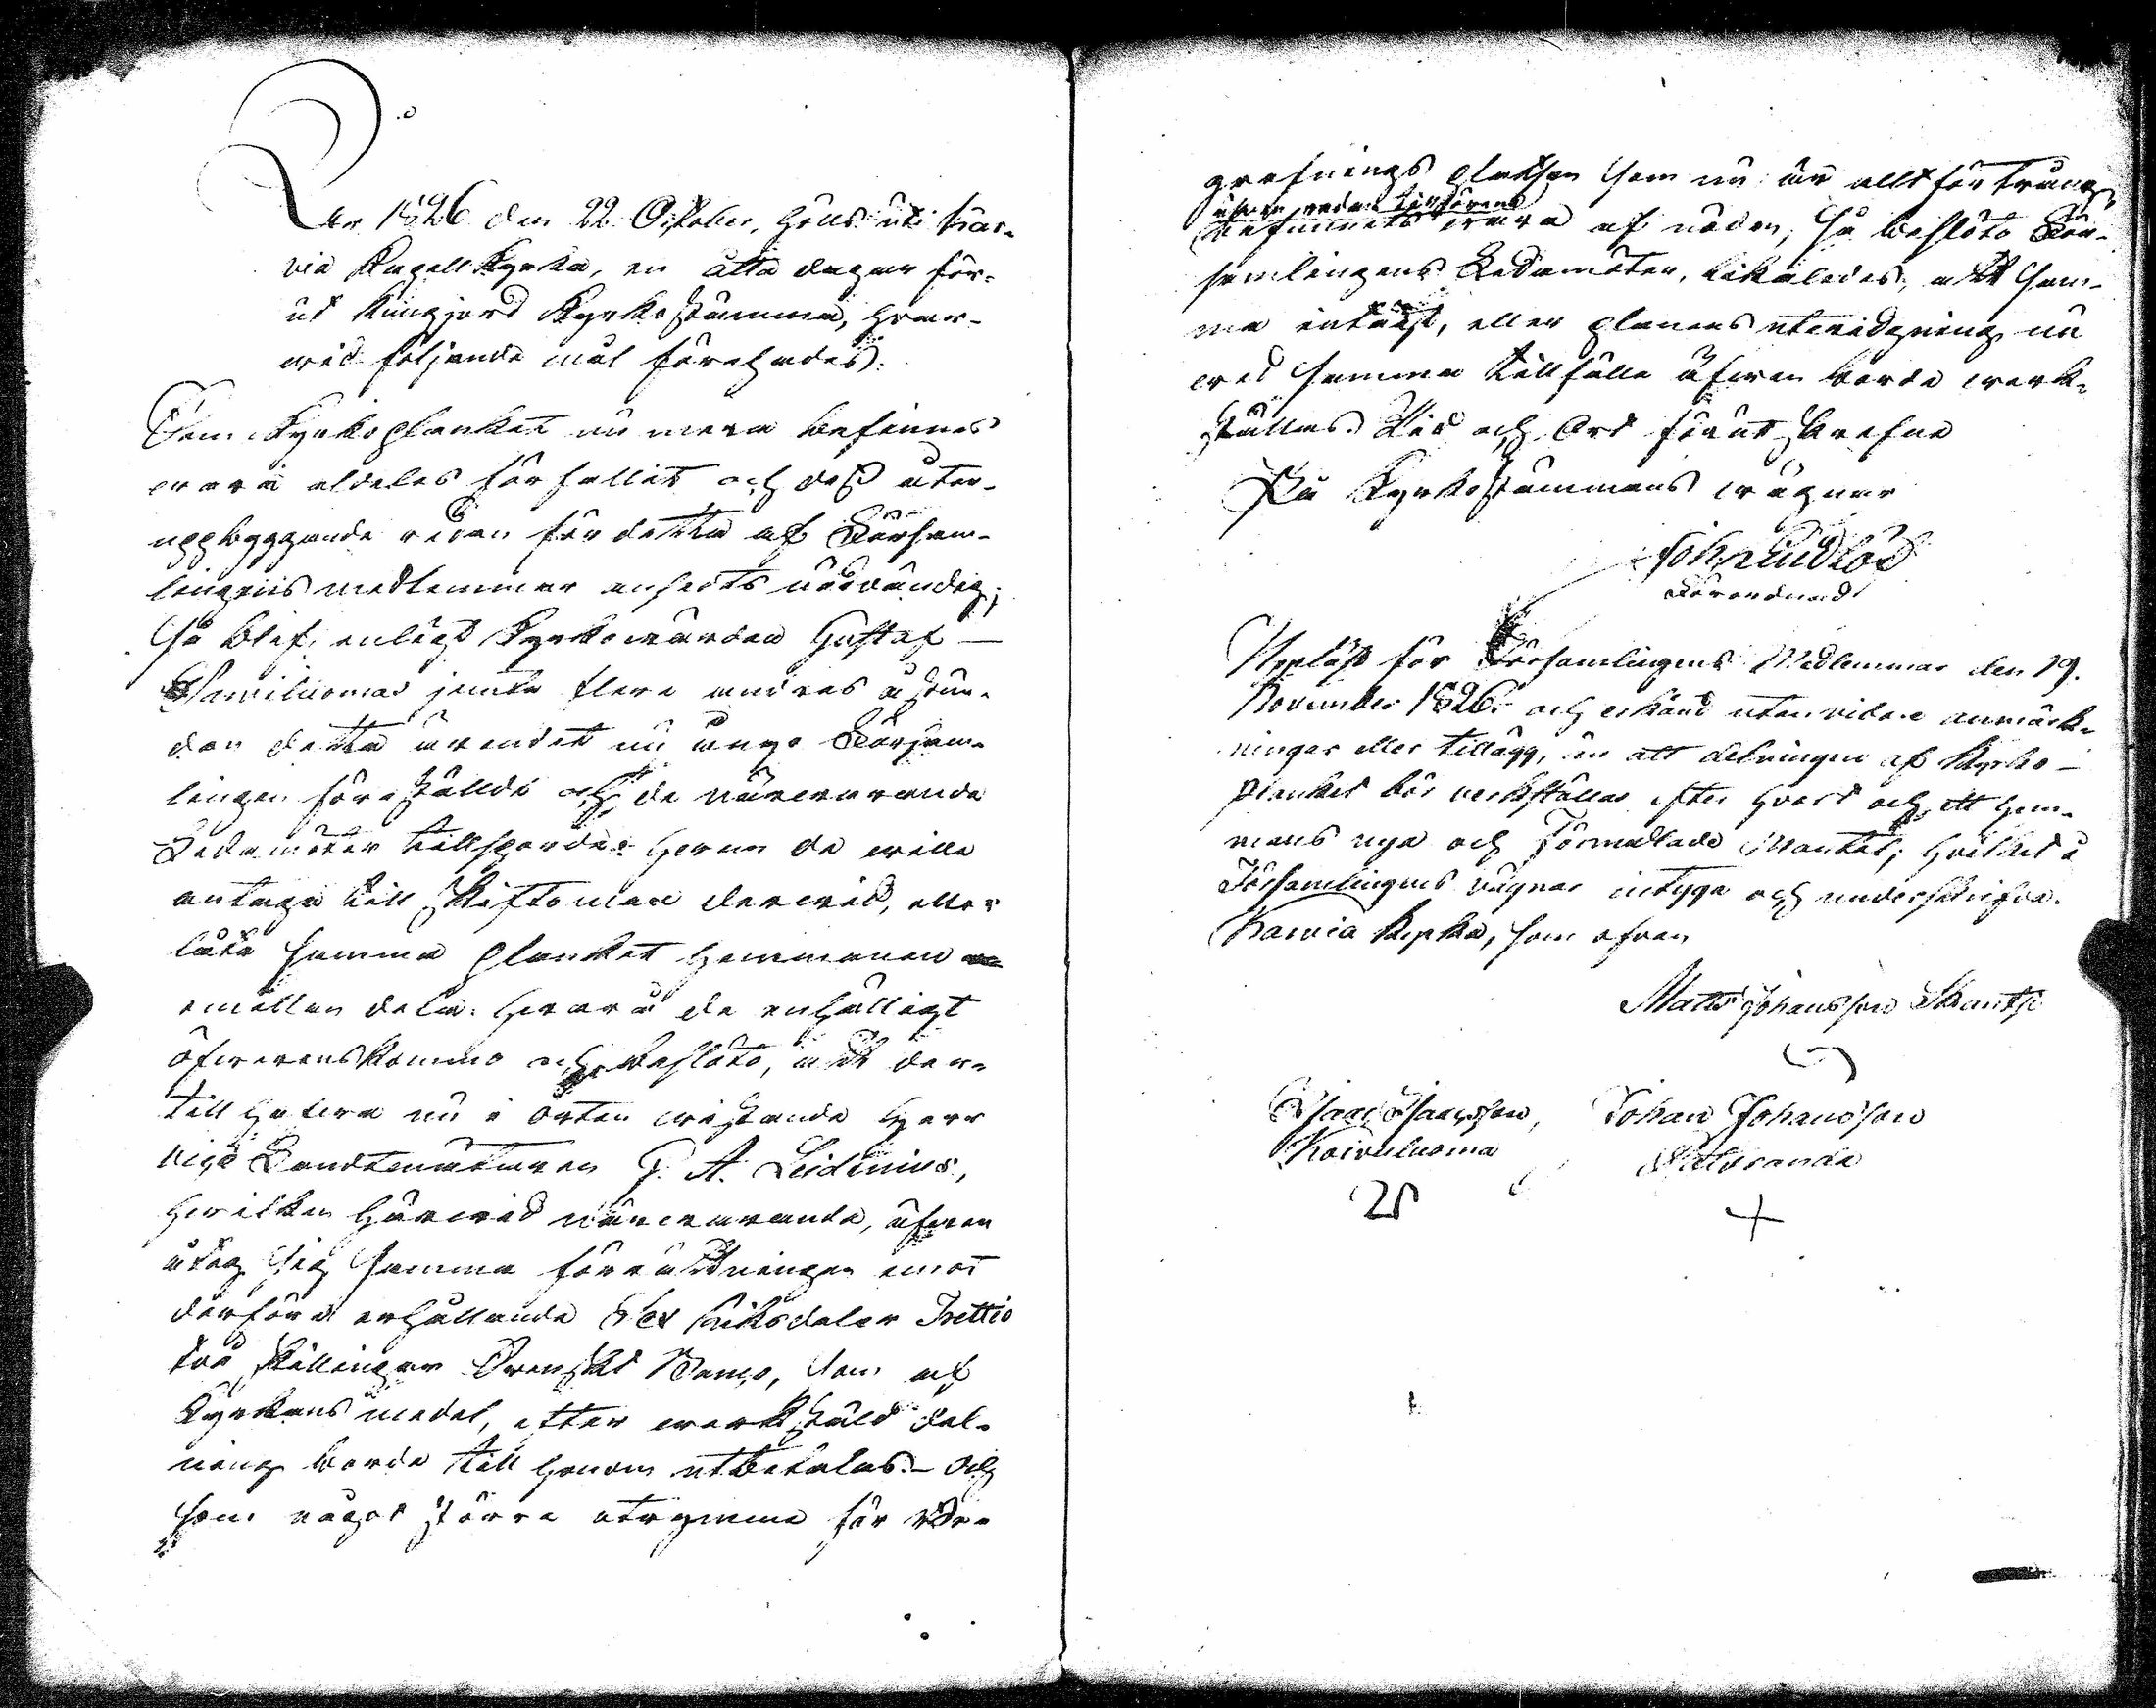 År 1826 den 22 October, höls uti Kar-
via Kapell Kyrka, en åtta dagarför-
ut kungjord Kyrkostämma, hvar-
wid följande mål förehades:
Som Kyrkoplanket nu mera befinnes
wara aldeles förfallit och dess åter-
uppbyggande redan för detta af Försam-
lingens medlemmar ansedts nödvändig;
så blef, enligt Kyrkowärden Gustaf
Sawiluomas jemte flere andres åstun-
dan detta ärendet nu ånyo Försam-
lingen föreställdt och de närwarande
Ledamöter tillsporde: hwem de wille
antaga till Skiftoman derwid, eller
låta samma planket hemmanen
emellan dela. hwarå de enhälligt
öfwerenskommo och beslöto, att der-
till hafwa nu i orten wistande Herr
Vice Landtmätaren G. A. Leidenius,
hwilken härwid närwarande, äfwen
åtog sig samma förrättningen emot
derföre erhållande Sex Riksdaler Trettio
två Skillingar Swenskt Banco, som af
Kyrkans medel, efter werkstäld del-
ning borde till honom utbetalas. - Och
som något större utrymme för be-
grafnings platsen som nu är allt för trång,
äfwen redan tillförene
befunnits wara af nöden, så beslöto För-
samlingens Ledamöter, likaledes, att sam-
ma intägt, eller planens utwidgning nu
wid samma tillfälle äfwen borde werk-
ställas. Tid och Ort förut skrefne
På Kyrkostämmans wägnar
Joh. Lindlöf
Förordnad
Uppläst för Församlingens Medlemmar den 19.
November 1826. och erkänd utan vidare anmärk-
ningar eller tillägg, än att delningen af Kyrko-
planket bör verkställas efter hvart och ett hem-
mans nya och Förmedlade Mantal; hvilket å
Församlingens vägnar intyga och underskrifva.
Karvia Kyrka, som ofvan
Matts Johansson Skantsi
Isaac Isaacsson, Johan Johansson
Koivuluoma Waldranda